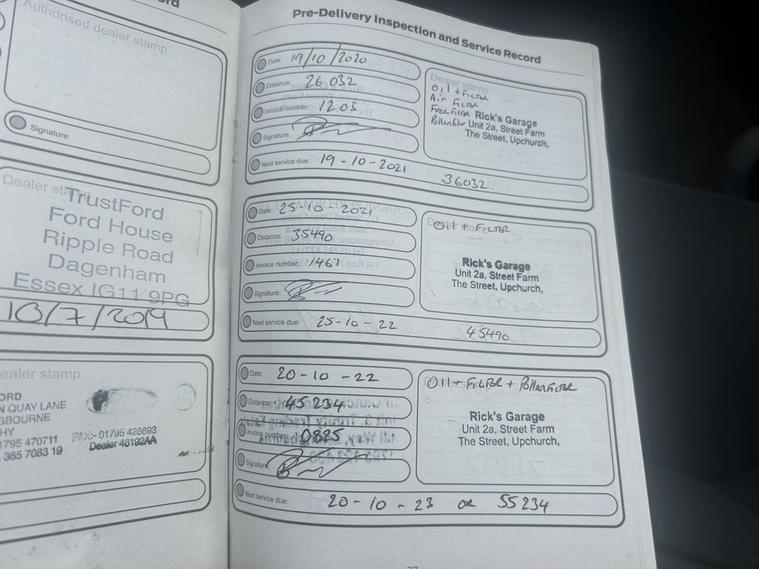 ord
Authorised dealer stamp
Signature:
Dealer stamp
TrustFord
Ford House
Ripple Road
Dagenham
Essex IG11 9PG
10/7/2019
ealer stamp
ORD
N QUAY LANE
GBOURNE
HY
1795 470711 FAX:- 01795 426693
385 7083 19 Dealer 46192AA
Pre-Delivery Inspection and Service Record
Date: 19/10/2020
Distance: 26,032
Invoice number: 1203
Signature:
Next service due: 19-10-2021 36032
Dealer stamp
Oil + Filter
Air Filter
Fuel Filter Rick's Garage
Pollen Filter Unit 2a, Street Farm
The Street, Upchurch,
Date: 25-10-2021
Distance: 35490
Invoice number: 1467
Signature:
Next service due: 25-10-22 45490
Oil + Filter
Rick's Garage
Unit 2a, Street Farm
The Street, Upchurch,
Date: 20-10-22
Distance: 45234
Invoice number: 0825
Signature:
Next service due: 20-10-23 OR 55234
Oil + Filter + Pollen Filter
Rick's Garage
Unit 2a, Street Farm
The Street, Upchurch,